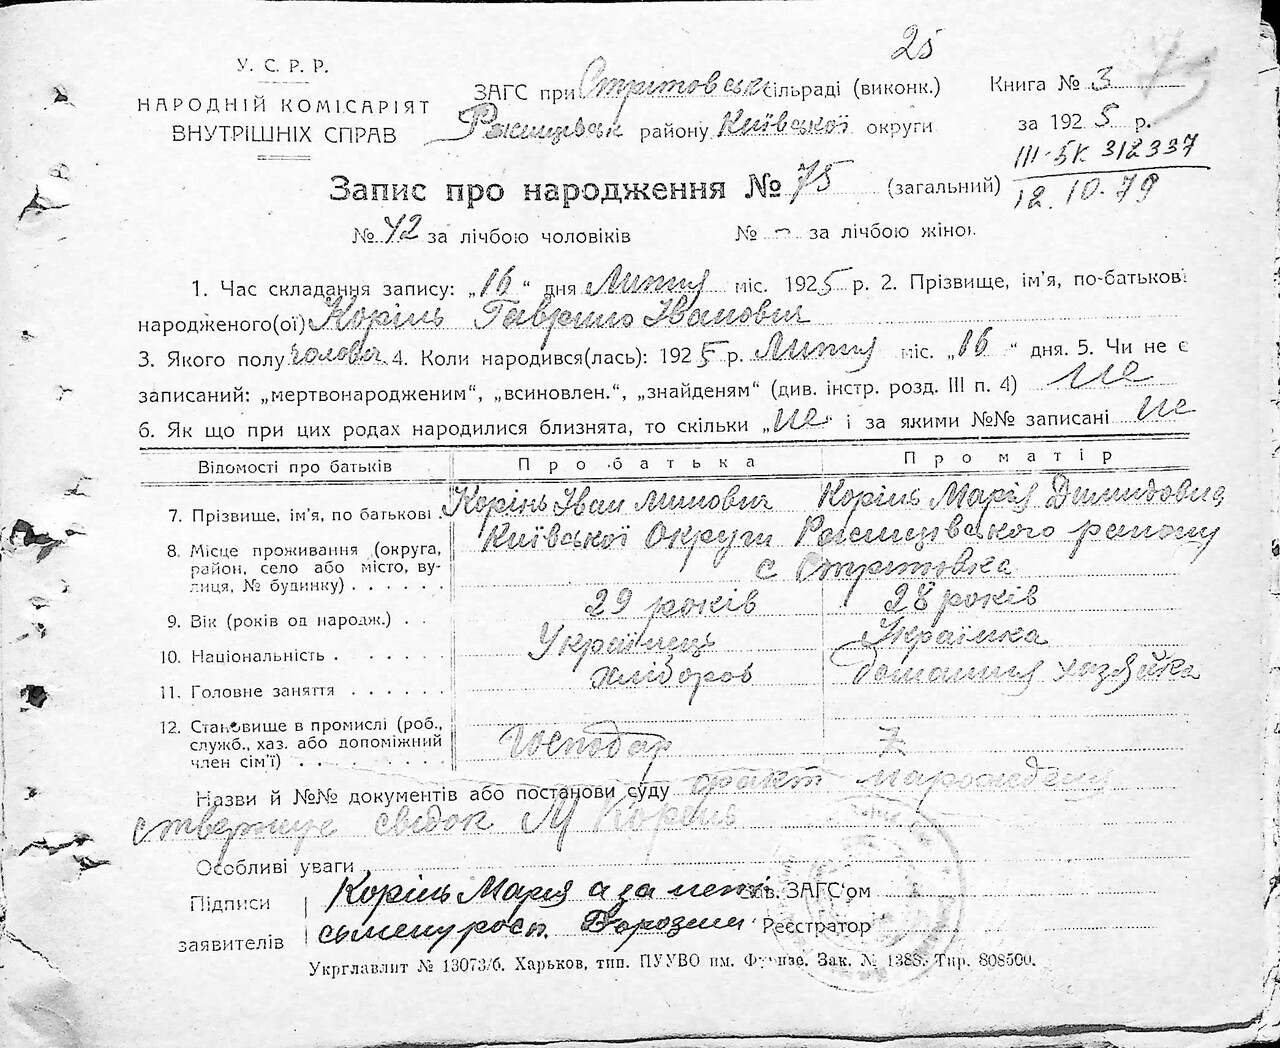 25
У. С. Р. Р.
НАРОДНІЙ КОМІСАРІЯТ
ВНУТРІШНІХ СПРАВ
ЗАГС при Стритовськ сільраді (виконк.)
Ржищівськ району Київської округи
Книга № 3
за 1925 р.
III-БК 312337
12.10.79
Запис про народження № 75 (загальний)
№ 42 за лічбою чоловіків № - за лічбою жінок
1. Час складання запису: „16“ дня Липня міс. 1925 р. 2. Прізвище, ім'я, по-батькові
народженого(ої) Корінь Гаврило Іванович
3. Якого полу чоловіч 4. Коли народився(лась): 1925 р. Липня міс. „16“ дня. 5. Чи не є
записаний: „мертвонародженим“, „всиновлен.“, „знайденям“ (див. інстр. розд. III п. 4) Не
6. Як що при цих родах народилися близнята, то скільки „Не“ і за якими №№ записані Не
Відомості про батьків Про батька Про матір
7. Прізвище, ім'я, по батькові Корінь Іван Корінь Марія Демидовна
8. Місце проживання (округа, район, село або місто, вулиця, № будинку) Київської Округи Ржищівського району
с Стритовка
9. Вік (років од народж.) 29 років 28 років
10. Національність Українець Українка
11. Головне заняття хлібороб Домашня хазяйка
12. Становище в промислі (роб., служб., хаз. або допоміжний член сім'ї) Господар
Назви й №№ документів або постанови суду факт народження
ствержує свідок М Корінь
Особливі уваги
Підписи заявителів
Корінь Марія а за неї Зав. ЗАГС'ом
Реєстратор
Укрглавлит № 13073/б. Харьков, тип. ПУУВО им. Фрунзе. Зак. № 1388. Тир. 808500.